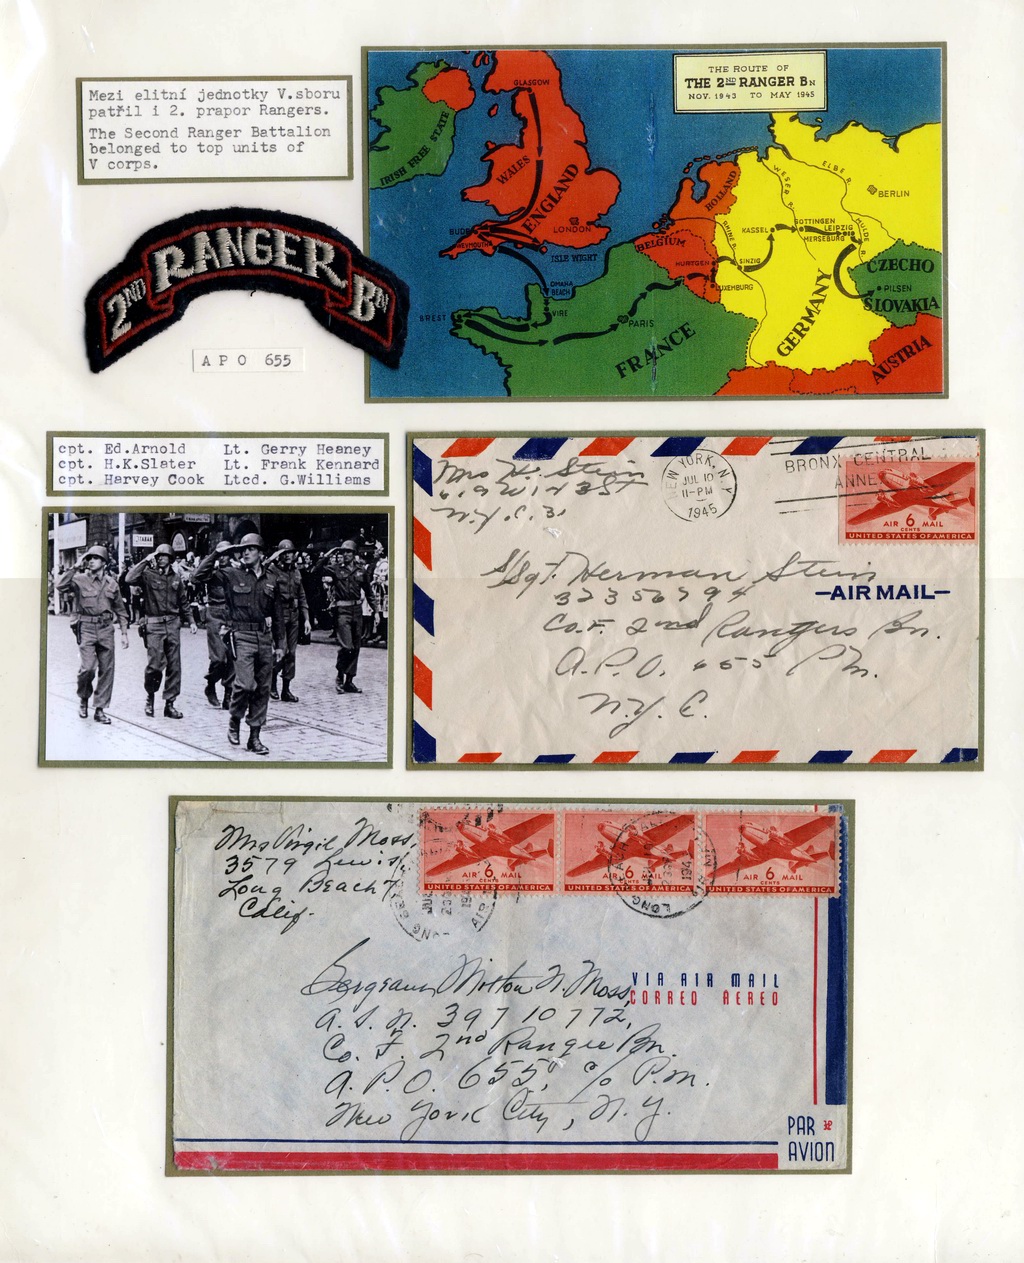 Mezi elitní jednotky V.sboru
patřil i 2. prapor Rangers.
The Second Ranger Battalion
belonged to top units of
V corps.
2ND RANGER BN
A P O 655
THE ROUTE OF
THE 2ND RANGER BN
NOV. 1943 TO MAY 1945
GLASGOW
IRISH FREE STATE
WALES
ENGLAND
BUDE
LONDON
WEYMOUTH
ISLE WIGHT
HOLLAND
BELGIUM
OMAHA
BEACH
VIRE
BREST
PARIS
FRANCE
HURTGEN
LUXEMBURG
RHINE R.
SINZIG
KASSEL
WESER R.
ELBE R.
BERLIN
GOTTINGEN
LEIPZIG
MERSEBURG
MULDE R.
GERMANY
CZECHO
SLOVAKIA
PILSEN
AUSTRIA
cpt. Ed.Arnold Lt. Gerry Heaney
cpt. H.K.Slater Lt. Frank Kennard
cpt. Harvey Cook Ltcd. G.Williams
Mrs H. Stein
N.Y.C. 3.
NEW YORK, N.Y.
JUL 10
11-PM
1945
BRONX CENTRAL
ANNEX
AIR 6 MAIL
CENTS
UNITED STATES OF AMERICA
S/Sgt. Herman Stein
32356794
Co. F. 2nd Rangers Bn.
A.P.O. 655 P.M.
N.Y.C.
AIR MAIL
Mrs Virgil Moss,
3579 Lewis,
Long Beach 7,
Calif.
AIR 6 MAIL
CENTS
UNITED STATES OF AMERICA
AIR 6 MAIL
CENTS
UNITED STATES OF AMERICA
AIR 6 MAIL
CENTS
UNITED STATES OF AMERICA
VIA AIR MAIL
CORREO AEREO
Sergeant Milton N. Moss,
A.S.N. 39710772,
Co. F. 2nd Ranger Bn.
A.P.O. 655, c/o P.M.
New York City, N.Y.
PAR
AVION